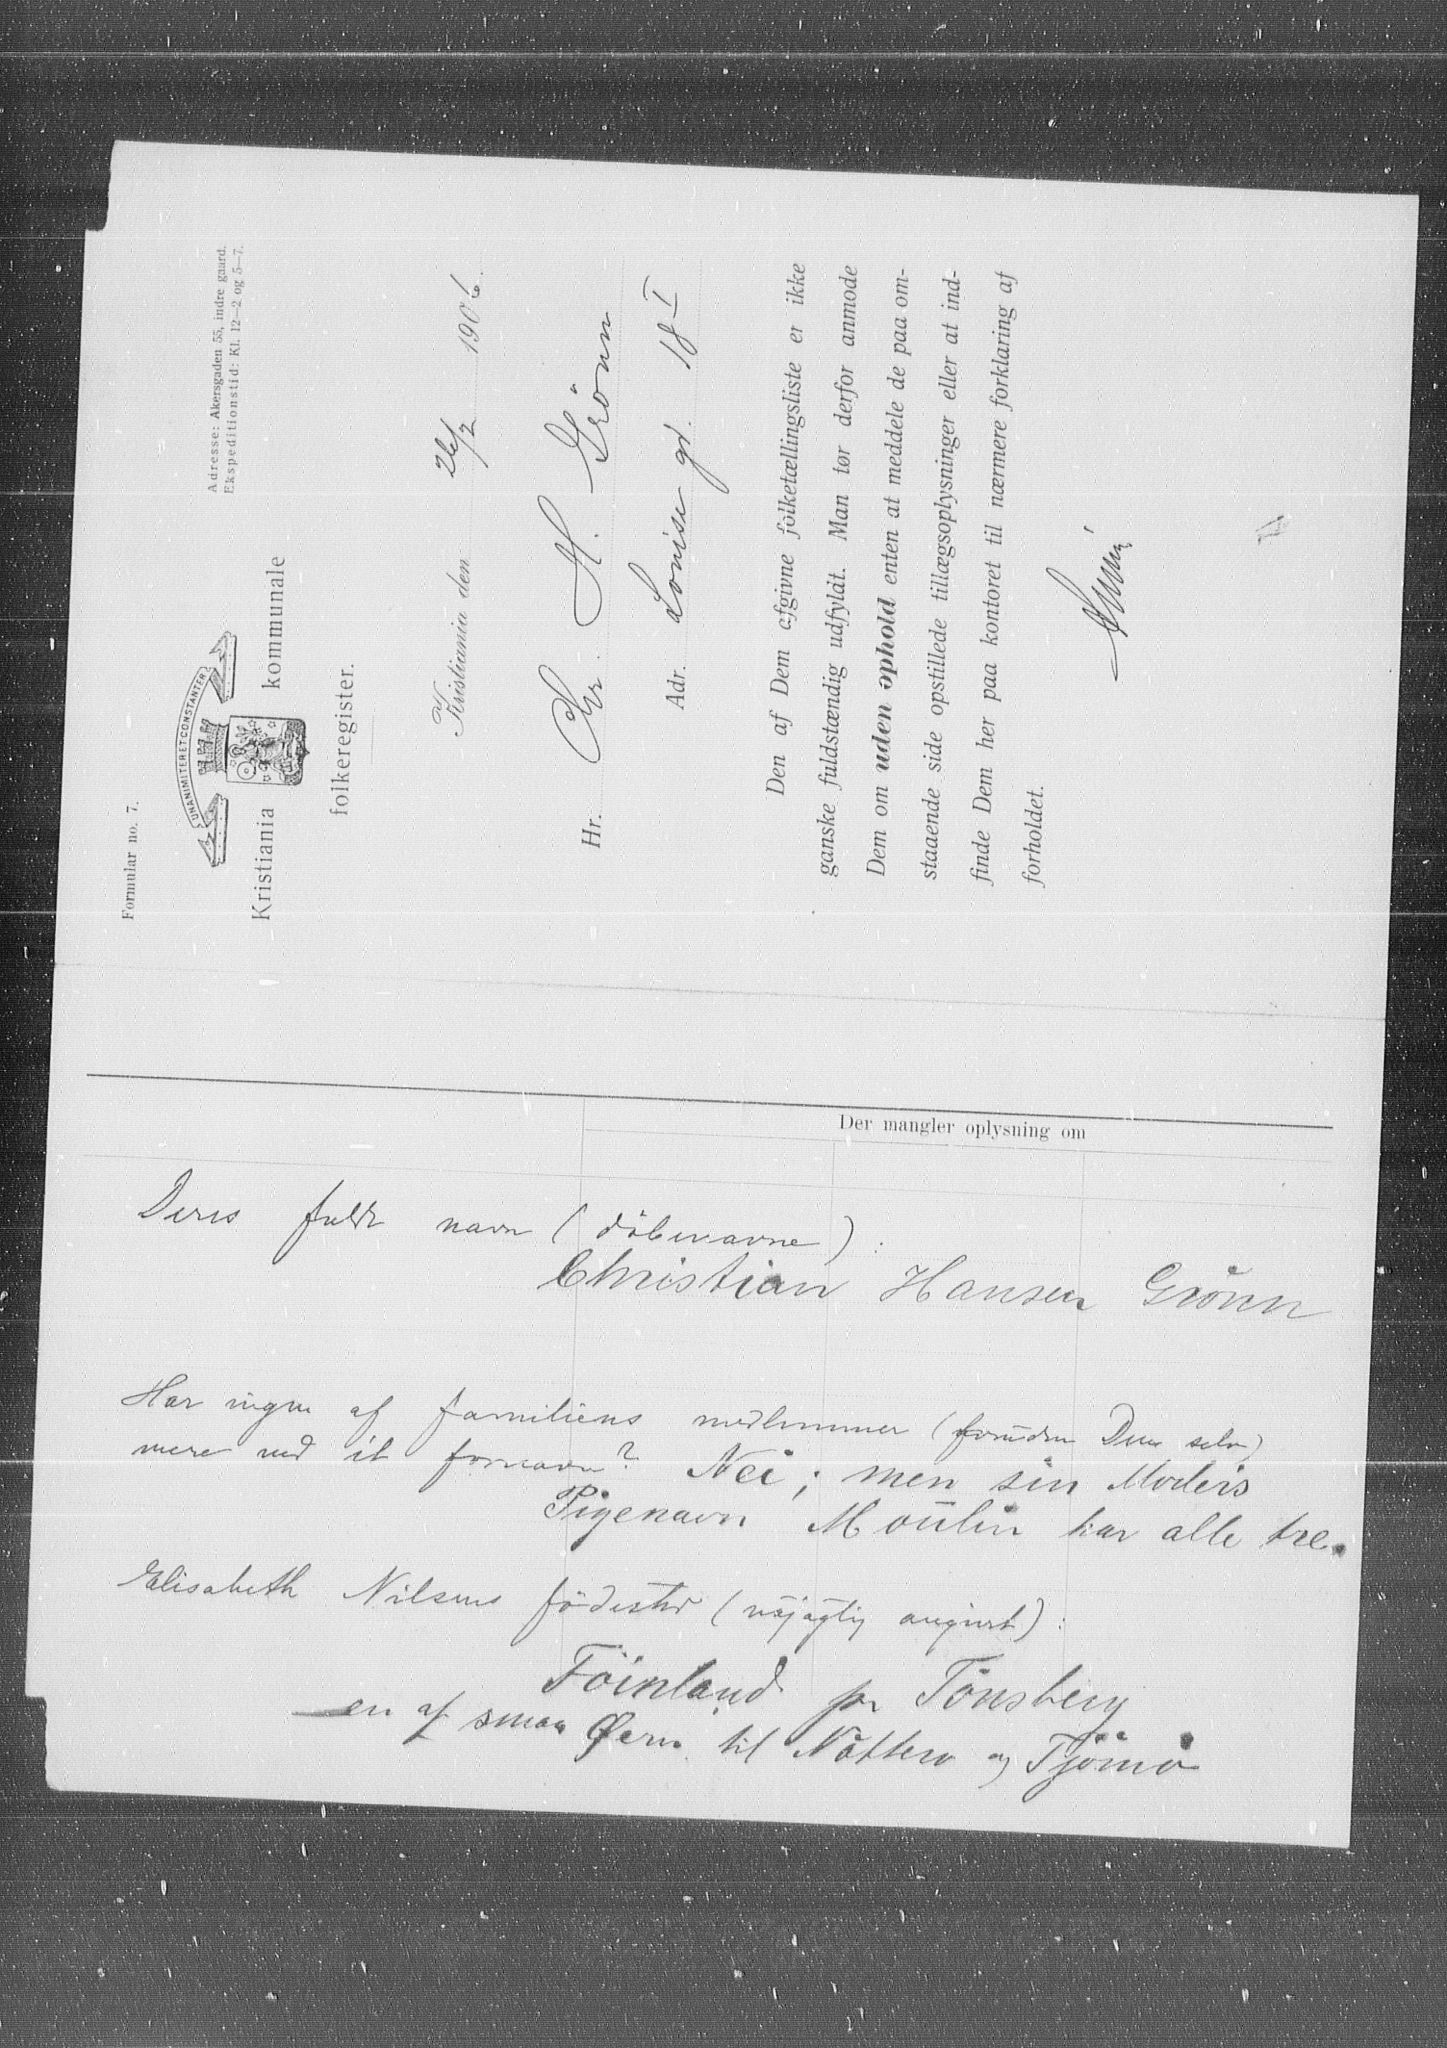 Formular no. 7.
Adresse: Akersgaden 55, indre gaard.
Ekspeditionstid: Kl. 12—2 og 5—7.
UNANIMITER ET CONSTANTER
Kristiania kommunale
folkeregister.
Kristiania den 26/2 1906.
Hr. Chr. H. Grönn
Adr. Louise gd. 18 I
Den af Dem afgivne folketællingsliste er ikke
ganske fuldstændig udfyldt. Man tør derfor anmode
Dem om uden ophold enten at meddele de paa om-
staaende side opstillede tillægsoplysninger eller at ind-
finde Dem her paa kontoret til nærmere forklaring af
forholdet.
Der mangler oplysning om
Deres fulde navn (döbenavne):
Christian Hansen Grönn
Har ingen af familiens medlemmer (foruden Dem selv)
mere end et fornavn? Nei; men sin Moders
Pigenavn Moulin har alle tre.
Elisabeth Nilsens födested (nöjagtig angivet):
Föinland pr Tönsberg
en af smaa Øerne til Nötterö og Tjömö